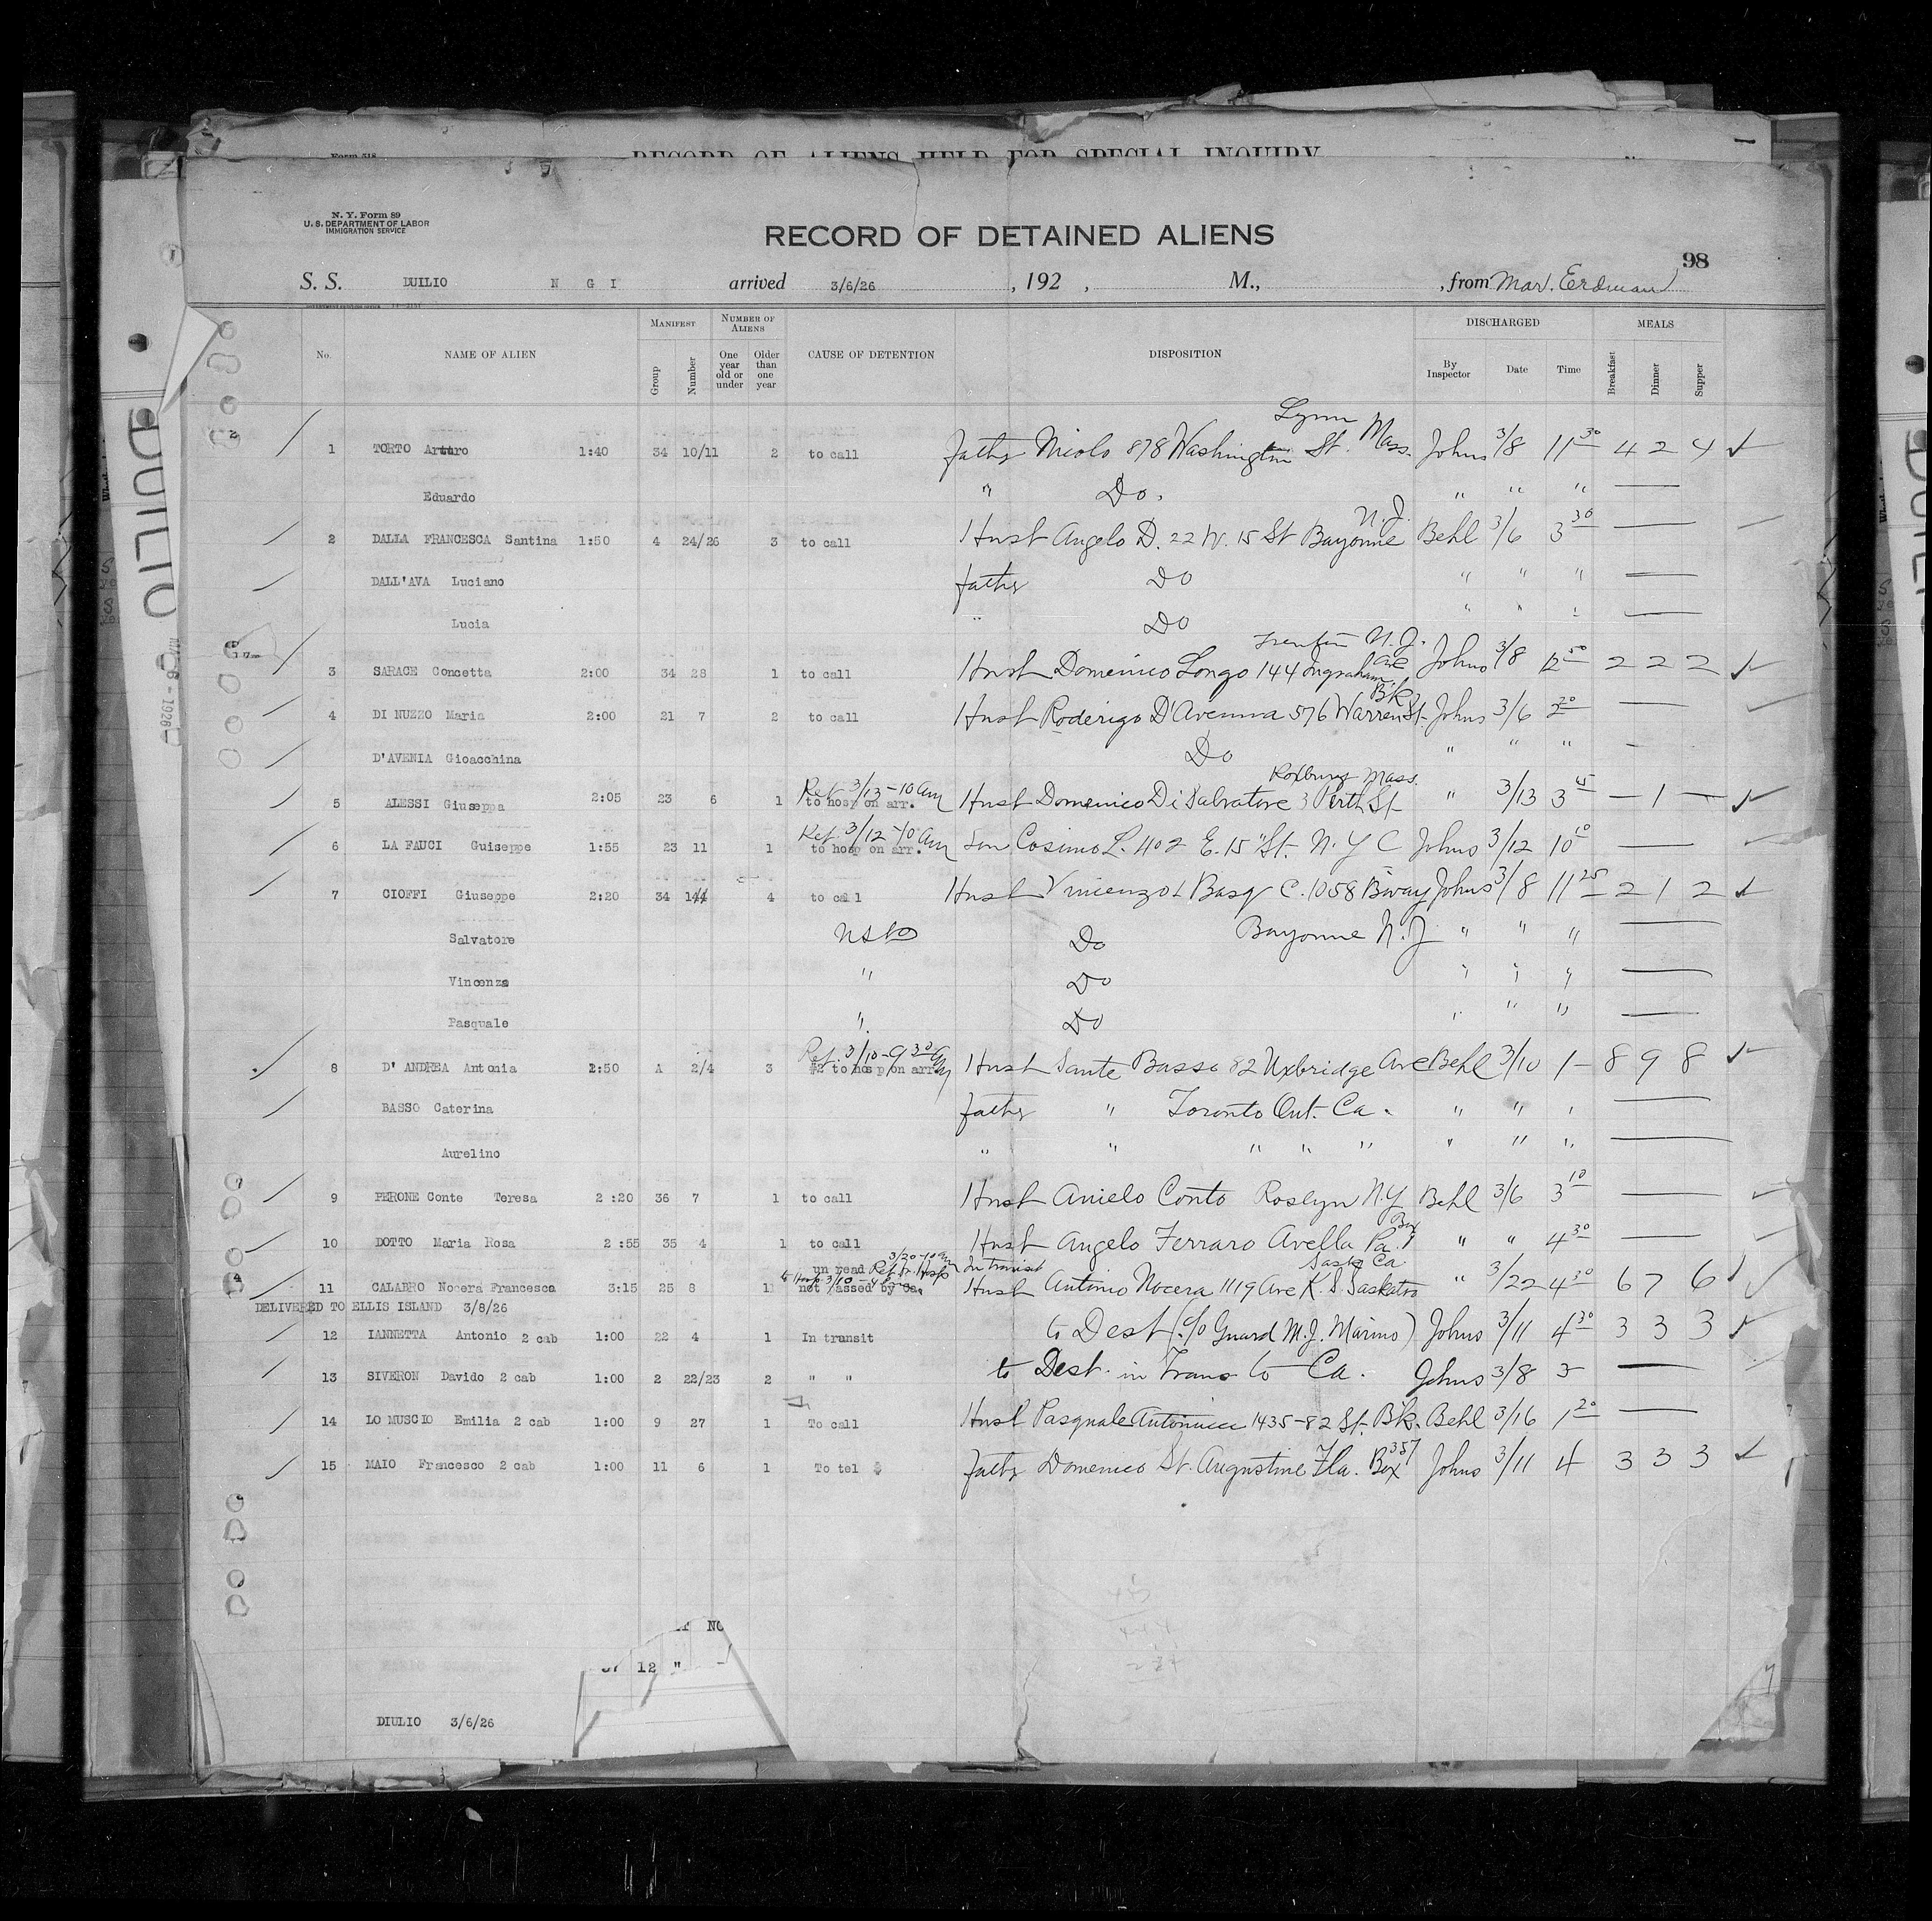 RECORD OF ALIENS HELD FOR SPECIAL INQUIRY
Form 518
N. Y. Form 89
U. S. DEPARTMENT OF LABOR
IMMIGRATION SERVICE
RECORD OF DETAINED ALIENS
98
S. S. DUILIO N G I arrived 3/6/26 , 192 , M., , from Mar. Erdman
No. NAME OF ALIEN MANIFEST Group Number NUMBER OF ALIENS One year old or under Older than one year CAUSE OF DETENTION DISPOSITION DISCHARGED By Inspector Date Time MEALS Breakfast Dinner Supper
Lynn
1 TORTO Arturo 1:40 34 10/11 2 to call father Nicolo 878 Washington St. Mass. Johns 3/8 11 30 4 2 4
Eduardo " Do. " " "
N.J.
2 DALLA FRANCESCA Santina 1:50 4 24/26 3 to call Husb Angelo D. 22 W. 15 St Bayonne Behl 3/6 3 30
DALL'AVA Luciano father Do " " "
Lucia " Do " " "
Trenton N.J.
3 SARACE Concetta 2:00 34 28 1 to call Husb Domenico Longo 144 Ingraham Ave Johns 3/8 12 50 2 2 2
Bk
4 DI NUZZO Maria 2:00 21 7 2 to call Husb Roderigo D'Avenna 576 Warren St. Johns 3/6 2 30
D'AVENIA Gioacchina Do " " "
Ret 3/13 - 10 am Roxbury Mass.
5 ALESSI Giuseppa 2:05 23 6 1 to hosp on arr. Husb Domenico Di Salvatore 3 Perth St " 3/13 3 45 — 1 —
Ret. 3/12 - 10 am
6 LA FAUCI Guiseppe 1:55 23 11 1 to hosp on arr. Son Cosimo L. 402 E. 15 " St. N. Y C Johns 3/12 10
7 CIOFFI Giuseppe 2:20 34 144 4 to call Husb Vincenzo L Basq C. 1058 Bway Johns 3/8 11 25 2 1 2
Salvatore Do Bayonne N.J " " "
Vincenza " Do " " "
Pasquale " Do " " "
Ret. 3/10 - 9 30 am
8 D' ANDREA Antonia 2:50 A 2/4 3 #2 to hosp on arr. Husb Sante Basso 82 Uxbridge Ave Behl 3/10 1 — 8 9 8
BASSO Caterina father " Toronto Ont. Ca. " " "
Aurelino " " " " " " " "
9 PERONE Conte Teresa 2:20 36 7 1 to call Husb Anielo Conto Roslyn N.Y Behl 3/6 3 10
Box
10 DOTTO Maria Rosa 2:55 35 4 1 to call Husb Angelo Ferraro Avella Pa. " " 4 30
3/20 - 10 am
un read Ret. fr. Hosp In transit Sask Ca
to Hosp 3/10
11 CALABRO Nocera Francesca 3:15 25 8 1 not passed by Ca. Husb Antonio Nocera 1119 Ave K. S. Saskatoo " 3/22 4 30 6 7 6
DELIVERED TO ELLIS ISLAND 3/8/26
12 IANNETTA Antonio 2 cab 1:00 22 4 1 In transit to Dest (c/o Guard M.J. Marino) Johns 3/11 4 30 3 3 3
13 SIVERON Davido 2 cab 1:00 2 22/23 2 " " to Dest. in Trans to Ca. Johns 3/8 5
14 LO MUSCIO Emilia 2 cab 1:00 9 27 1 To call Husb Pasquale 1435-82 St. Bk. Behl 3/16 1 20
15 MAIO Francesco 2 cab 1:00 11 6 1 To tel $ father Domenico St. Augustine Fla. Box 357 Johns 3/11 4 3 3 3
NO
37 12 " -
DIULIO 3/6/26
DUILIO
MAR 6 - 1926